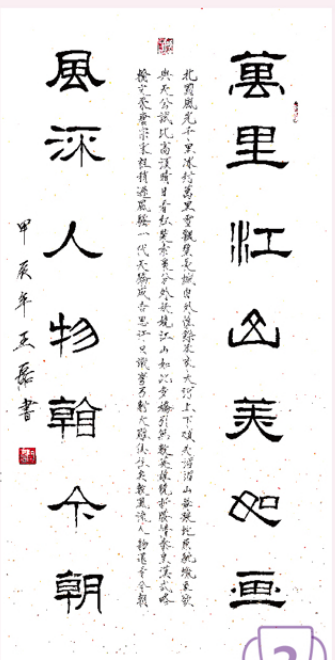 萬里江山美如画
北國風光千里冰封萬里雪飄望長城内外惟餘莽莽大河上下頓失滔滔山舞銀蛇原馳蠟象欲
與天公試比高須晴日看紅裝素裹分外妖嬈江山如此多嬌引無數英雄競折腰惜秦皇漢武略
輸文采唐宗宋祖稍遜風騷一代天驕成吉思汗只識彎弓射大雕俱往矣數風流人物還看今朝
風流人物看今朝
甲辰年王磊書